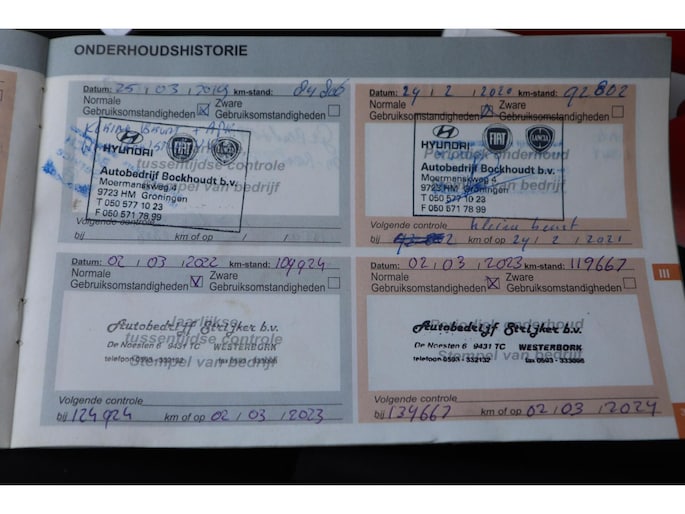 ONDERHOUDSHISTORIE
Datum: 25 / 03 / 2019 km-stand:
Normale Gebruiksomstandigheden ☒ Zware Gebruiksomstandigheden ☐
tussentijdse controle
Stempel van bedrijf
HYUNDAI FIAT LANCIA
Autobedrijf Bockhoudt b.v.
Moermanskweg 4
9723 HM Groningen
T 050 577 10 23
F 050 571 78 99
Volgende controle
bij km of op / /
Datum: 24 / 2 / 2020 km-stand: 92802
Normale Gebruiksomstandigheden ☒ Zware Gebruiksomstandigheden ☐
Periodiek onderhoud
Stempel van bedrijf
HYUNDAI FIAT LANCIA
Autobedrijf Bockhoudt b.v.
Moermanskweg 4
9723 HM Groningen
T 050 577 10 23
F 050 571 78 99
Volgende controle kleine beurt
bij km of op 24 / 2 / 2021
Datum: 02 / 03 / 2022 km-stand: 109924
Normale Gebruiksomstandigheden ☒ Zware Gebruiksomstandigheden ☐
Jaarlijkse
tussentijdse controle
Stempel van bedrijf
Autobedrijf Strijker b.v.
De Noesten 6 9431 TC WESTERBORK
telefoon 0593 - 332132 fax 0593 - 333895
Volgende controle
bij 124924 km of op 02 / 03 / 2023
Datum: 02 / 03 / 2023 km-stand: 119667
Normale Gebruiksomstandigheden ☒ Zware Gebruiksomstandigheden ☐
Periodiek onderhoud
Stempel van bedrijf
Autobedrijf Strijker b.v.
De Noesten 6 9431 TC WESTERBORK
telefoon 0593 - 332132 fax 0593 - 333895
Volgende controle
bij 134667 km of op 02 / 03 / 2024
III